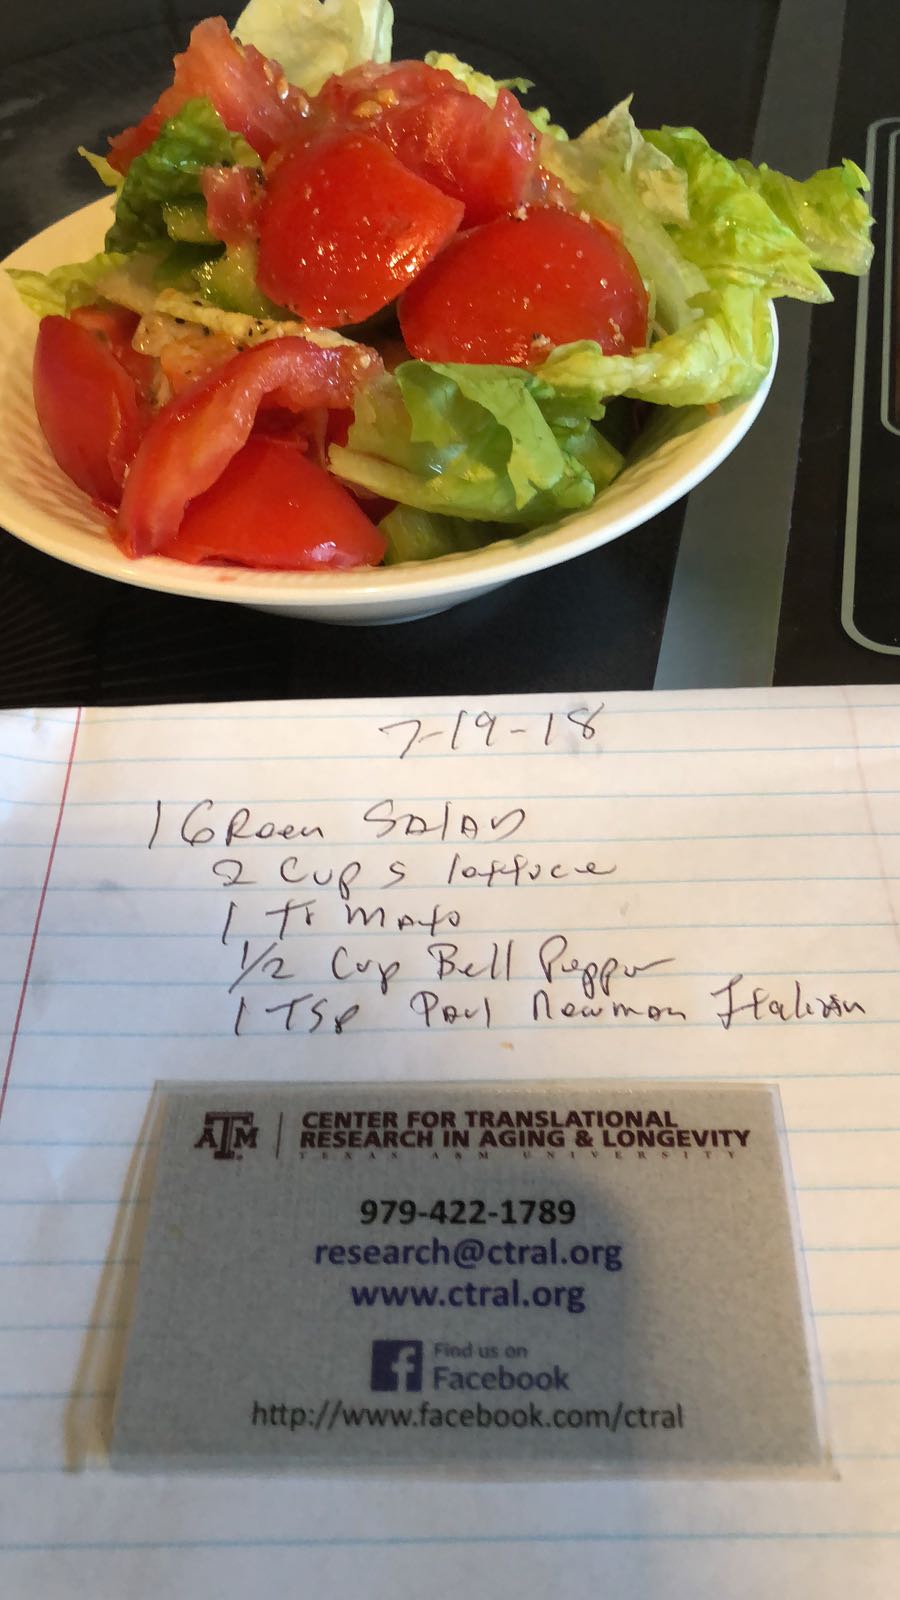 7-19-18
1 Green Salad
2 Cups lettuce
1 Tomato
1/2 Cup Bell Pepper
1 Tsp Paul Newman Italian
ATM | CENTER FOR TRANSLATIONAL
RESEARCH IN AGING & LONGEVITY
TEXAS A&M UNIVERSITY
979-422-1789
research@ctral.org
www.ctral.org
f Find us on
Facebook
http://www.facebook.com/ctral